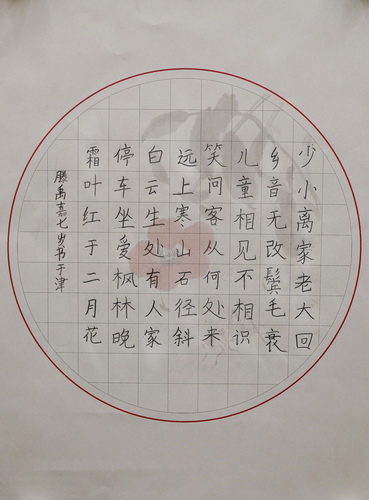 少小离家老大回
乡音无改鬓毛衰
儿童相见不相识
笑问客从何处来
远上寒山石径斜
白云生处有人家
停车坐爱枫林晚
霜叶红于二月花
滕禹嘉七岁书于津